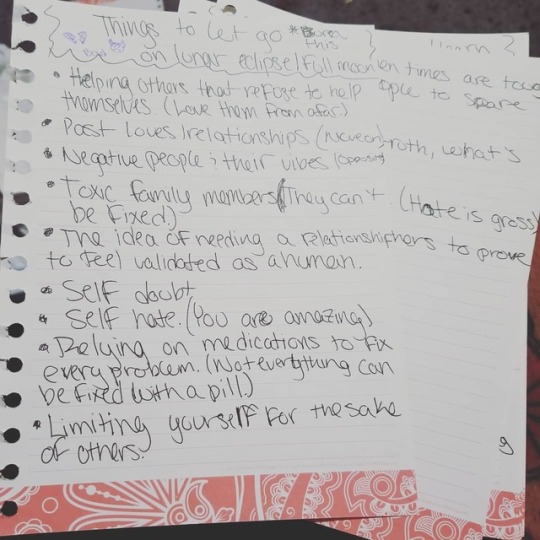 Things to let go *Burn this
on lunar eclipse/full moon
• Helping others that refuse to help
themselves. (Love them from afar)
• Past loves/relationships
• Negative people & their vibes
• Toxic family members (They can't
be fixed)
• The idea of needing a relationship
to feel validated as a human.
• Self doubt
• Self hate. (You are amazing)
• Relying on medications to fix
every problem. (Not everything can
be fixed with a pill.)
• Limiting yourself for the sake
of others.
en times are toug
ple to spare
roth, what's
(Hate is gross)
hers to prove
g